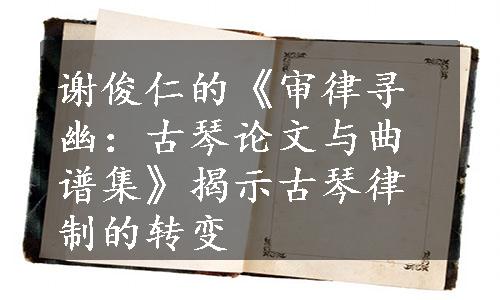 谢俊仁的《审律寻
幽：古琴论文与曲
谱集》揭示古琴律
制的转变